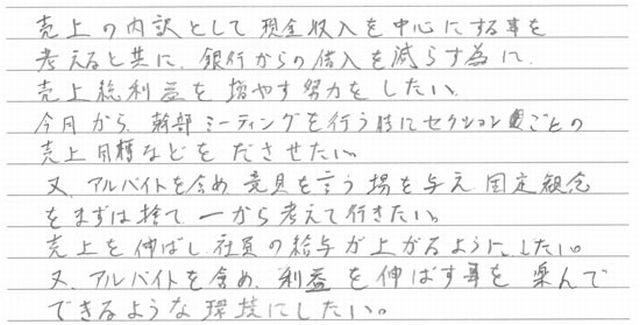 売上の内訳として現金収入を中心にする事を
考えると共に、銀行からの借入を減らす為に
売上総利益を増やす努力をしたい。
今月から、幹部ミーティングを行う時にセクションごとの
売上目標などをださせたい。
又、アルバイトを含め意見を言う場を与え固定観念
をまずは捨て、一から考えて行きたい。
売上を伸ばし社員の給与が上がるようにしたい。
又、アルバイトを含め、利益を伸ばす事を楽んで
できるような環境にしたい。